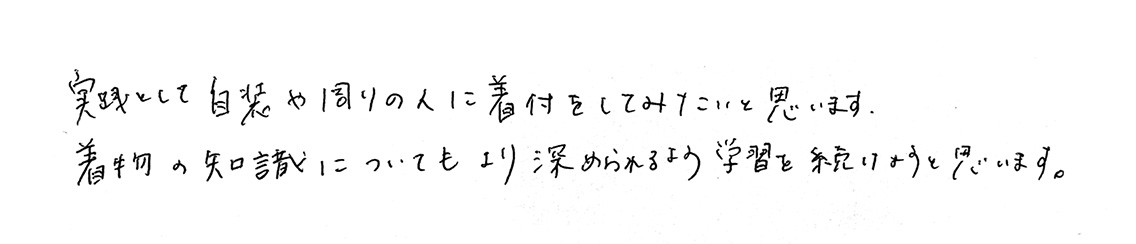 実践として自装や周りの人に着付をしてみたいと思います.
着物の知識についてもより深められるよう学習を続けようと思います。